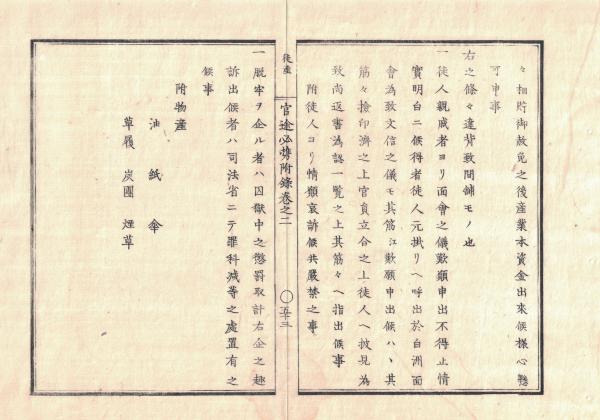 々相貯御赦免之後産業本資金出来候様心懸
可申事
右之條々違背致間鋪モノ也
一徒人親戚者ヨリ面會之儀歎願申出不得止情
實明白ニ候得者徒人元掛リヘ呼出於白洲面
會為致文信之儀モ其筋江歎願申出候ハヽ其
筋々撿印濟之上官員立合之上徒人ヘ披見為
致尚返書為認一覧之上其筋々ヘ指出候事
附徒人ヨリ情願哀訴候共嚴禁之事
徒産
官途必携附録巻之二
〇五十三
一脱牢ヲ企ル者ハ囚獄中之懲罰取計右企之趣
訴出候者ハ司法省ニテ罪科減等之處置有之
候事
附物産
油 紙 傘
草履 炭團 煙草